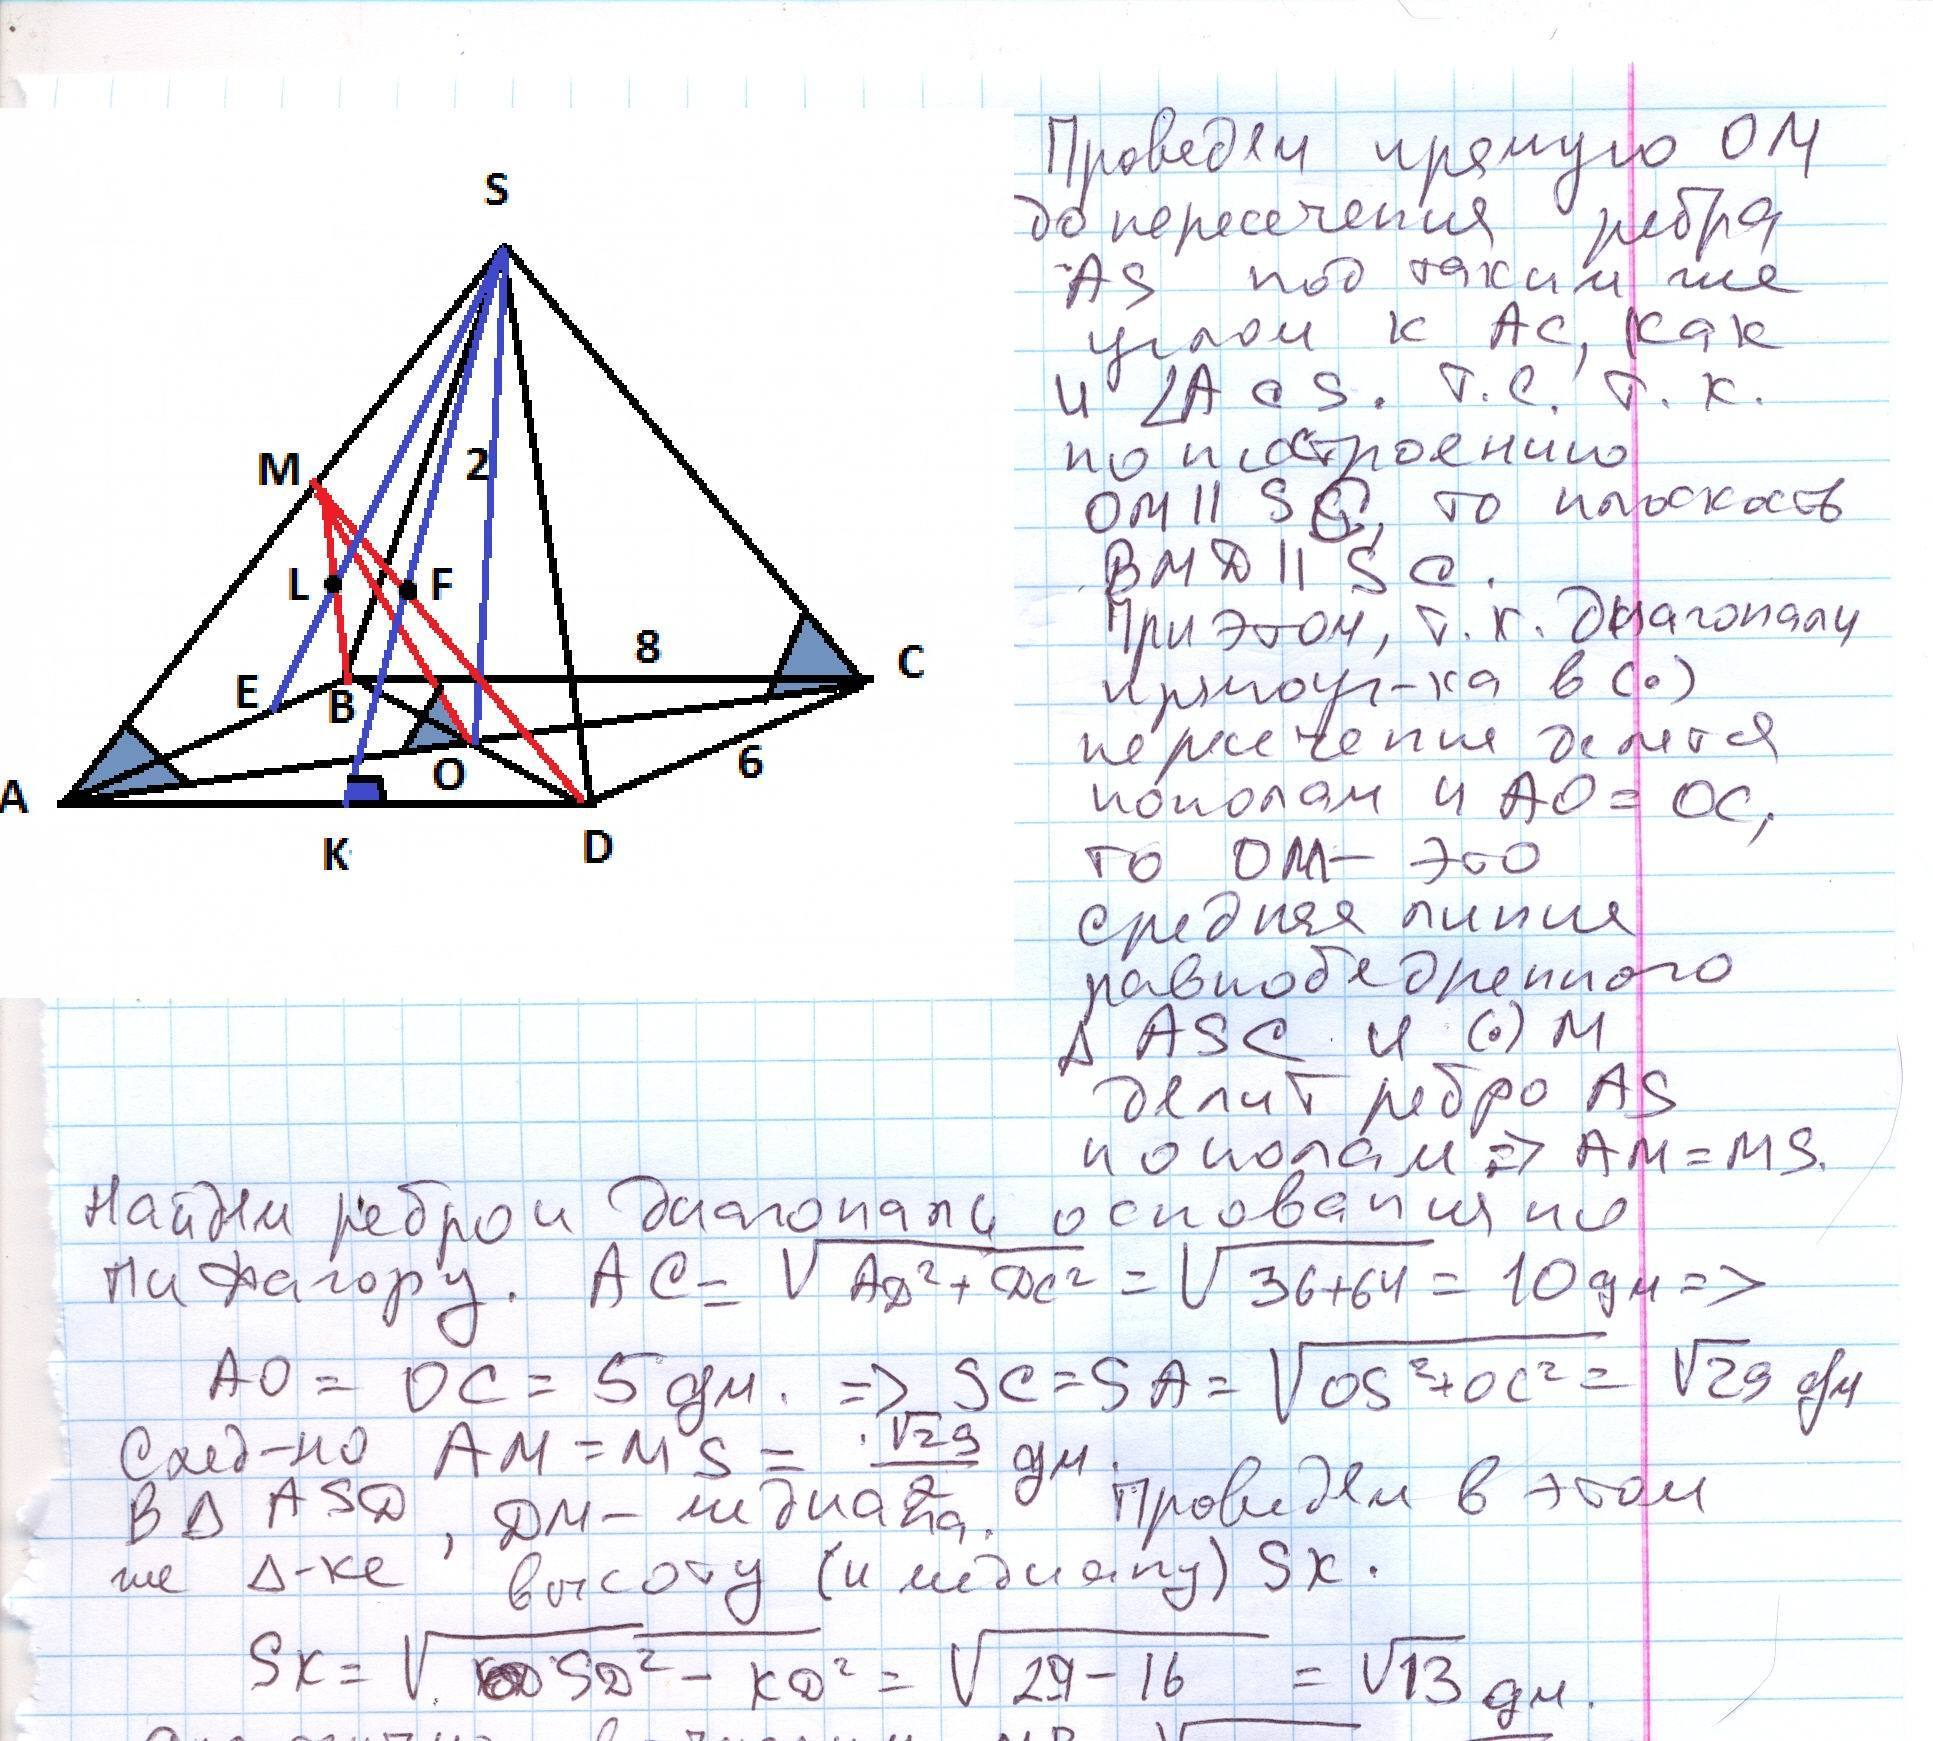 S
M
2
L
F
8
C
E
B
6
A
O
K
D
Проведём прямую ОМ
до пересечения ребра
AS под таким же
углом к AC, как
и ∠ACS. Т.С. Т.К.
по построению
OM || SC, то плоскость
BMD || SC.
При этом, т.к. диагонали
прямоуг-ка в (•)
пересечения делятся
пополам и AO = OC,
то OM – это
средняя линия
равнобедренного
Δ ASC и (•) M
делит ребро AS
пополам => AM = MS.
Найдём ребро и диагонали основания по
Пифагору. AC = √AD²+DC² = √36+64 = 10 дм =>
AO = OC = 5 дм. => SC = SA = √OS²+OC² = √29 дм
След-но AM = MS = √29/2 дм.
В Δ ASD, DM – медиана. Проведём в этом
же Δ-ке высоту (и медиану) SK.
SK = √SD² – KD² = √29 – 16 = √13 дм.